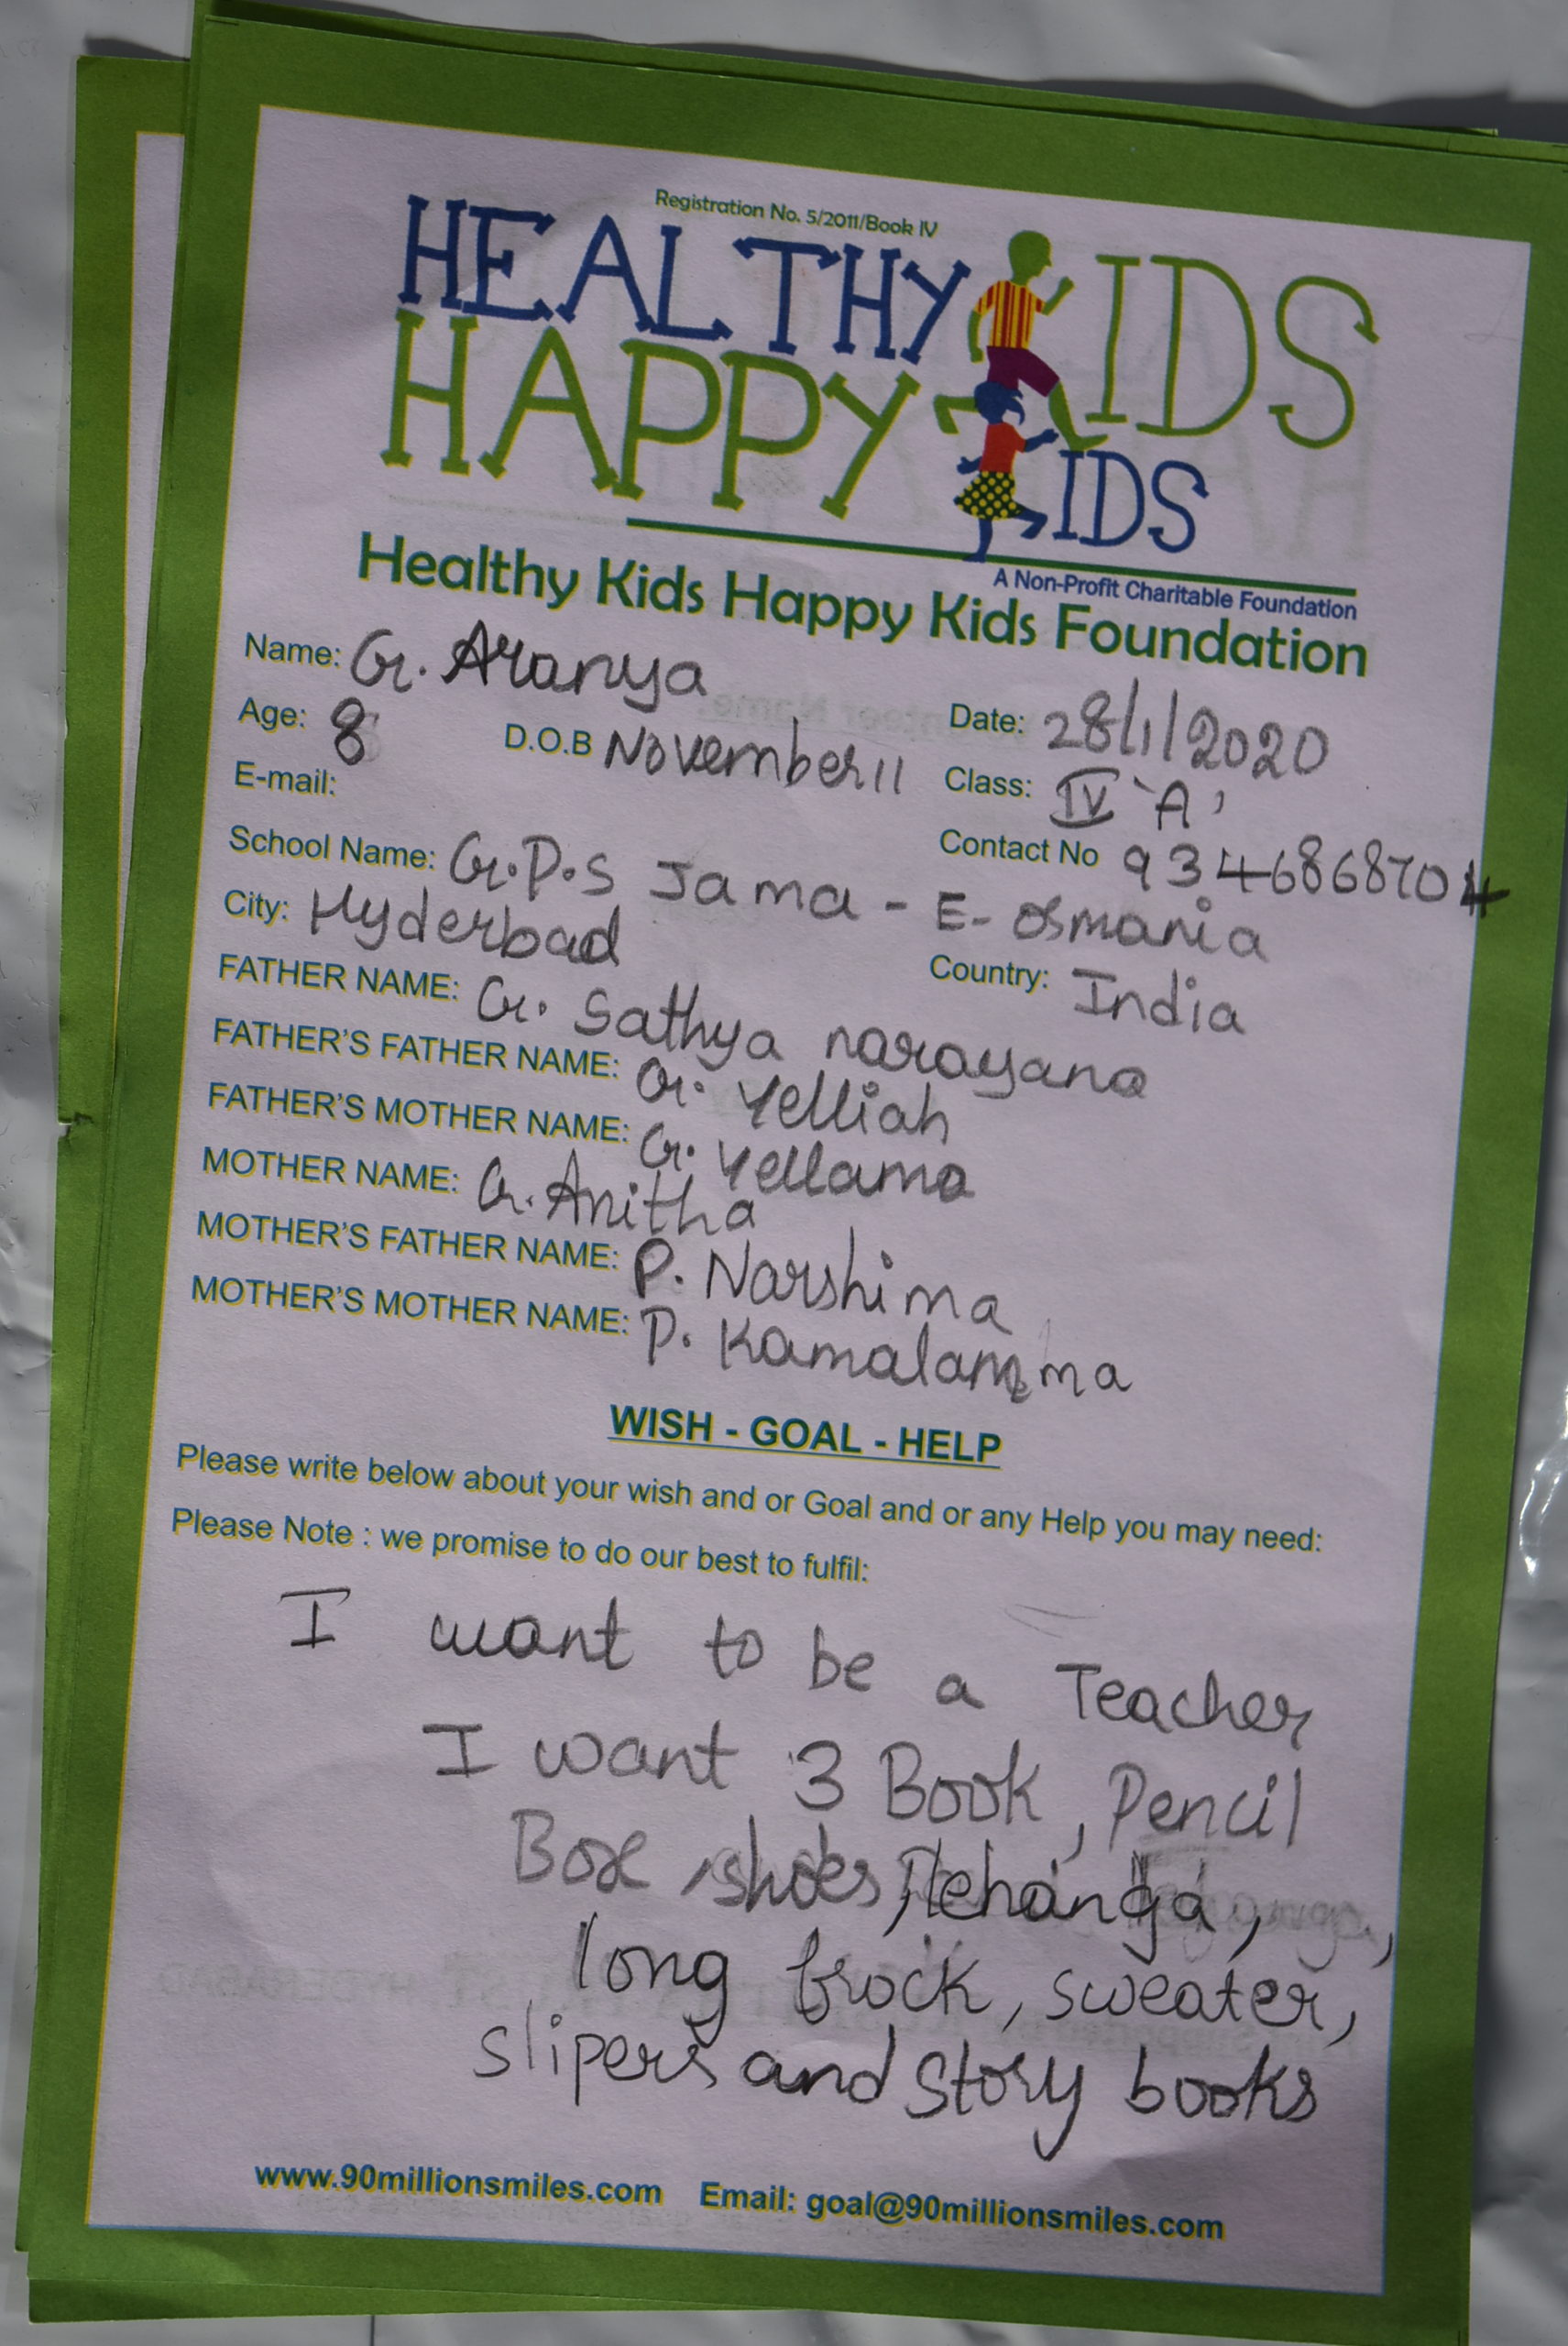 Registration No. 5/2011/Book IV
HEALTHY KIDS
HAPPY KIDS
A Non-Profit Charitable Foundation
Healthy Kids Happy Kids Foundation
Name: G. Aranya
Date: 28/1/2020
Age: 8 D.O.B November 11
Class: IV 'A'
E-mail:
Contact No 9346868704
School Name: G.P.S Jama - E- Osmania
City: Hyderbad
Country: India
FATHER NAME: G. Sathya narayana
FATHER'S FATHER NAME: G. Yelliah
FATHER'S MOTHER NAME: G. Yellama
MOTHER NAME: G. Anitha
MOTHER'S FATHER NAME: P. Narshima
MOTHER'S MOTHER NAME: P. Kamalamma
WISH - GOAL - HELP
Please write below about your wish and or Goal and or any Help you may need:
Please Note : we promise to do our best to fulfil:
I want to be a Teacher
I want 3 Book, Pencil
Box, shoes, lehanga,
long frock, sweater,
slipers and story books
www.90millionsmiles.com Email: goal@90millionsmiles.com